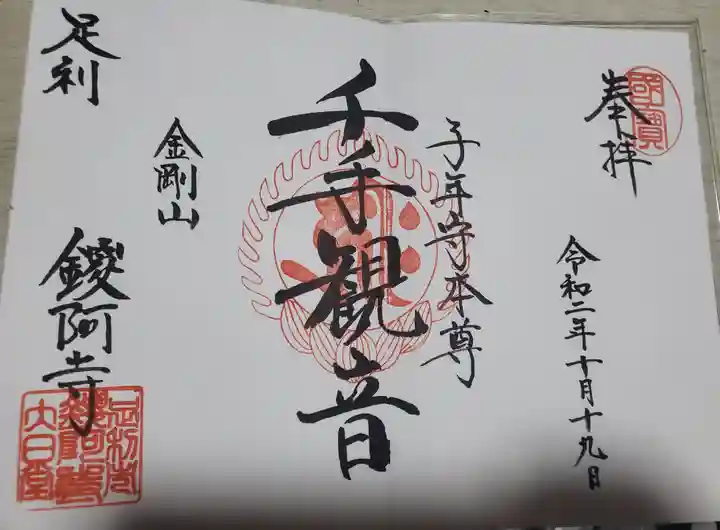 奉拝
國寶
令和二年十月十九日
子年守本尊
千手観音
金剛山
足利
鑁阿寺
足利市
鑁阿寺
大日堂